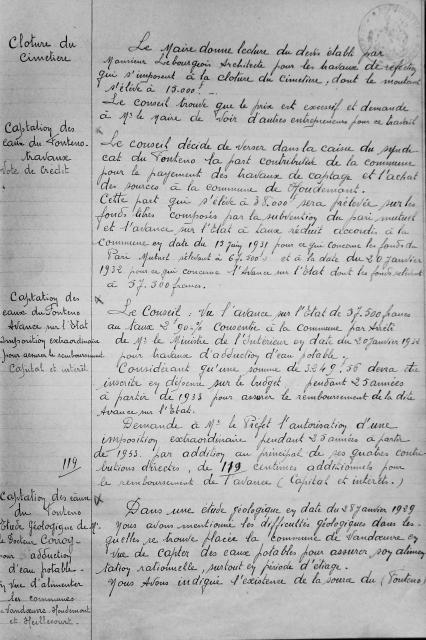 Cloture du
Cimetiere
Le Maire donne lecture du devis établi par
Monsieur Lebourgeois Architecte pour les travaux de réfection
qui s'imposent à la cloture du cimetière, dont le montant
s'élève à 15.000f.
Le conseil trouve que le prix est excessif et demande
à Mr le Maire de voir d'autres entrepreneurs pour ce travail
Captation des
eaux du Fonteno.
travaux
Vote de Crédit
Le conseil décide de verser dans la caisse du syndi-
cat du Fonteno la part contributive de la commune
pour le payement des travaux de captage et l'achat
des sources à la commune de Houdemont.
Cette part qui s'élève à 38.000f sera prélevée sur les
fonds libres composés par la subvention du pari mutuel
et l'avance sur l'Etat à taux réduit accordés à la
commune en date du 15 juin 1931 pour ce qui concerne les fonds du
Pari Mutuel s'élevant à et à la date du 20 janvier
1932 pour ce qui concerne l'Avance sur l'Etat dont les fonds s'élèvent
à 57.500 francs.
Captation des
eaux du Fonteno
Avance sur l'Etat
Imposition extraordinaire
pour assurer le remboursement
Capital et intérêt
Le Conseil: Vu l'avance sur l'Etat de 57.500 francs
au taux 2'90% Consentie à la commune par Arrêté
de Mr le Ministre de l'Intérieur en date du 20 janvier 1932
pour travaux d'adduction d'eau potable.
Considérant qu'une somme de 3249,56 devra être
inscrite en dépense sur le budget pendant 25 années
à partir de 1933 pour assurer le remboursement de la dite
Avance sur l'Etat.
Demande à Mr le Préfet l'autorisation d'une
imposition extraordinaire pendant 25 années à partir
de 1933. par addition au principal de ses quatre contri-
butions directes, de 119 centimes additionnels pour
le remboursement de l'avance (Capital et intérêts.)
119
Captation des eaux
du Fonteno
Etude Géologique de Mr
le Docteur Corroy
pour adduction
d'eau potable.
en vue d'alimenter
les communes
Vandœuvre Houdemont
et Heillecourt.
Dans une étude géologique en date du 28 janvier 1929
Nous avons mentionné les difficultés géologiques dans les-
quelles se trouve placée la commune de Vandœuvre en
vue de capter des eaux potables pour assurer son alimen
tation rationnelle, surtout en période d'étiage.
Nous Avons indiqué l'existence de la source du (Fonteno)